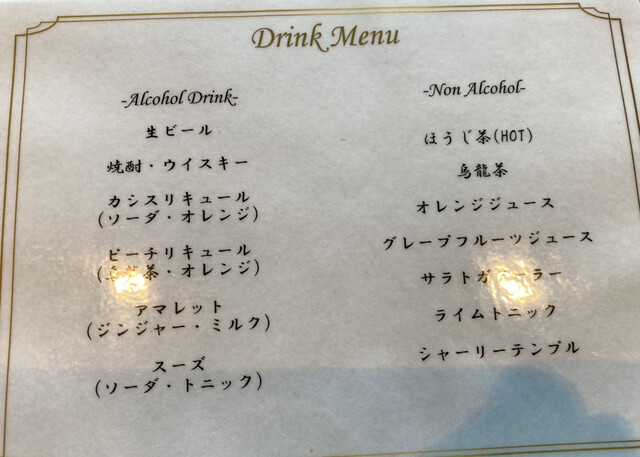 Drink Menu
-Alcohol Drink-
生ビール
焼酎・ウイスキー
カシスリキュール
(ソーダ・オレンジ)
ピーチリキュール
(烏龍茶・オレンジ)
アマレット
(ジンジャー・ミルク)
スーズ
(ソーダ・トニック)
-Non Alcohol-
ほうじ茶(HOT)
烏龍茶
オレンジジュース
グレープフルーツジュース
サラトガクーラー
ライムトニック
シャーリーテンプル